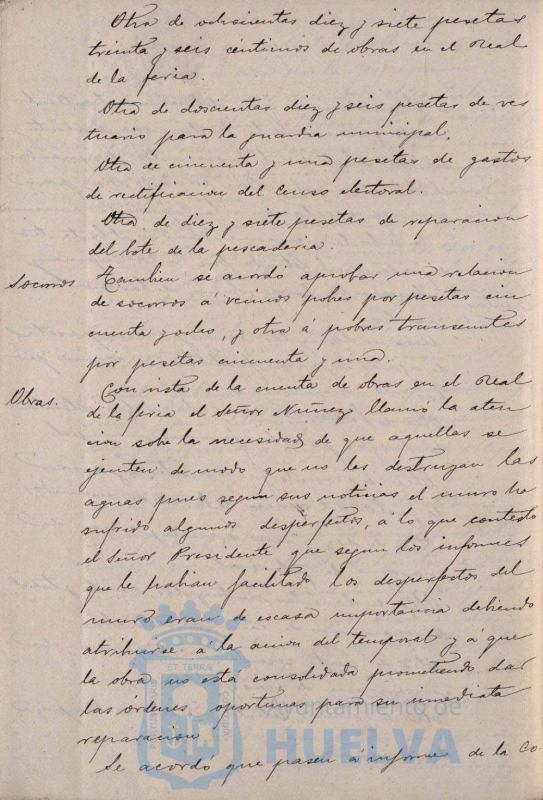 Otra de ochocientas diez y siete pesetas
treinta y seis céntimos de obras en el Real
de la feria.
Otra de doscientas diez y seis pesetas de ves
tuario para la guardia municipal.
Otra de cincuenta y una pesetas de gastos
de rectificacion del Censo electoral.
Otra de diez y siete pesetas de reparacion
del bote de la pescaderia.
Socorros Tambien se acordó aprobar una relacion
de socorros á vecinos pobres por pesetas cin
cuenta y ocho, y otra á pobres transeuntes
por pesetas cincuenta y una.
Obras. Con vista de la cuenta de obras en el Real
de la feria el Señor Nuñez llamó la aten
cion sobre la necesidad de que aquellas se
ejecuten de modo que no las destruyan las
aguas pues segun sus noticias el muro ha
sufrido algunos desperfectos, á lo que contestó
el Señor Presidente que segun los informes
que le habian facilitado los desperfectos del
muro eran de escasa importancia debiendo
atribuirse a la accion del temporal y á que
la obra no está consolidada prometiendo dar
las órdenes oportunas para su inmediata
reparacion
Se acordó que pasen a informe de la Co-
ET TERRÆ
Ayuntamiento de
HUELVA